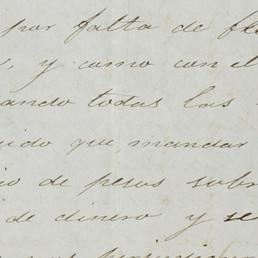 por falta de
y como con el
ando todas las
ido que mandar
io de pesos sobr
de dinero y se